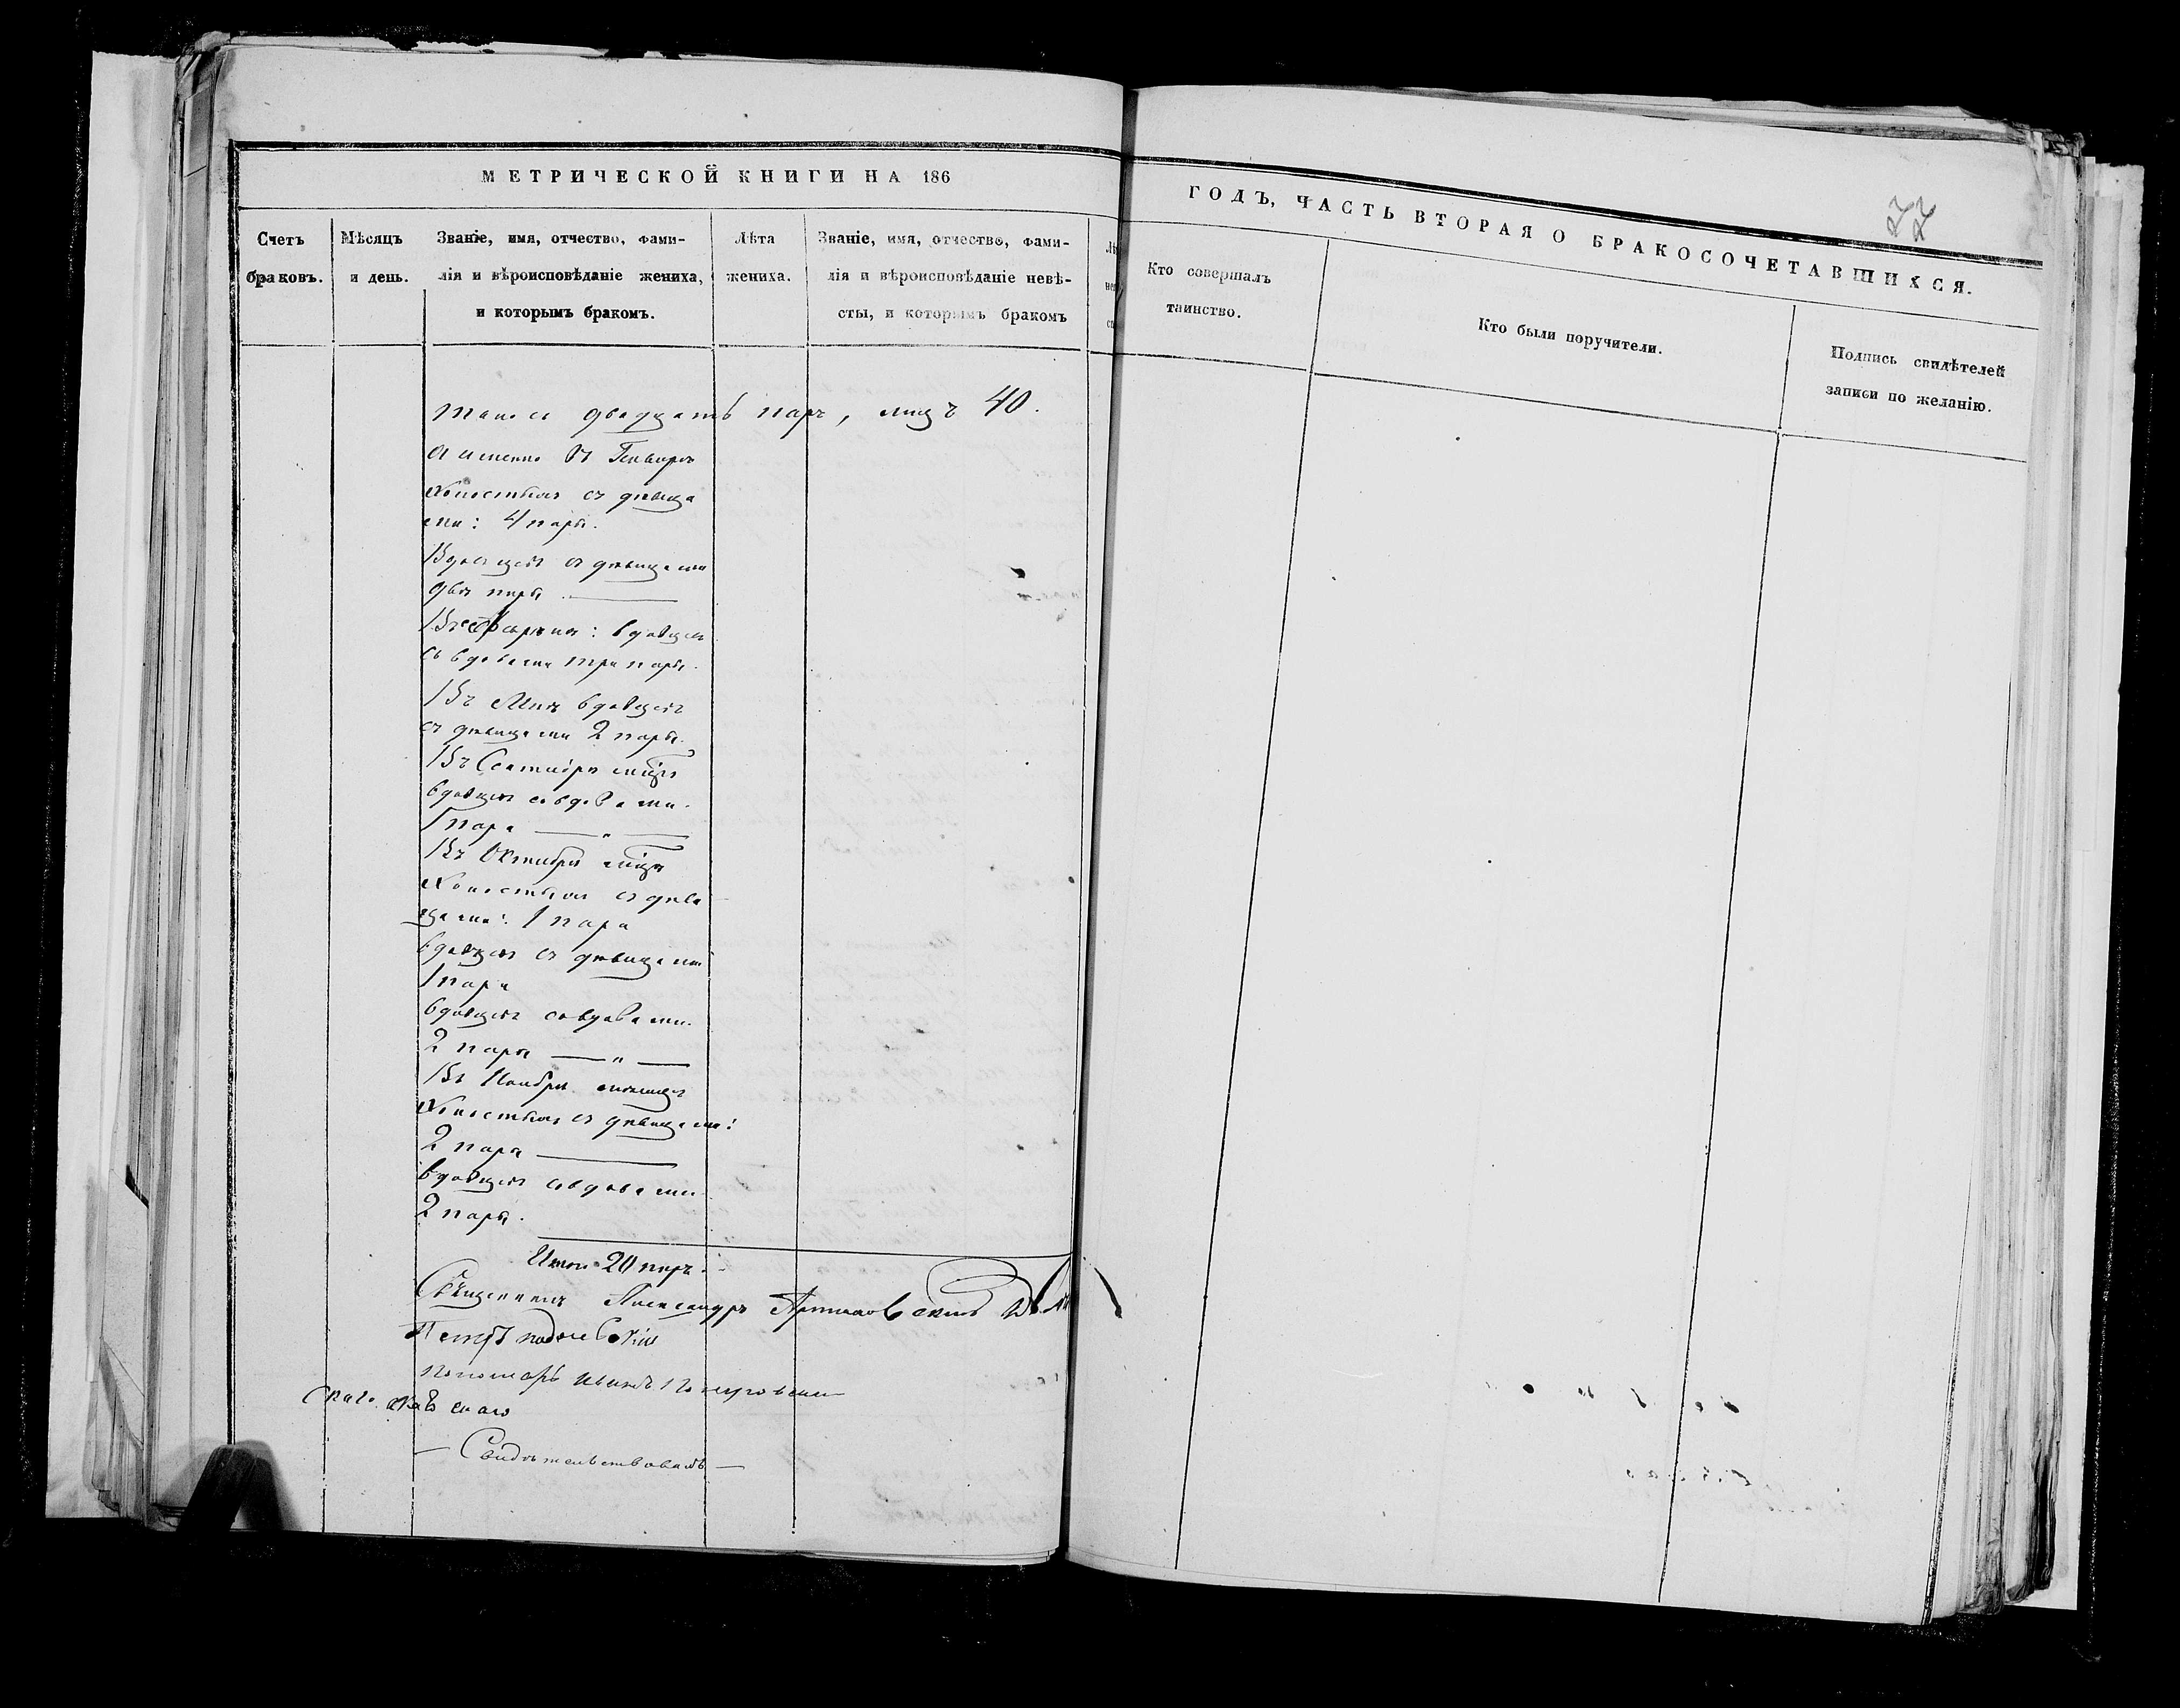 МЕТРИЧЕСКОЙ КНИГИ НА 186
ГОДЪ, ЧАСТЬ ВТОРАЯ О БРАКОСОЧЕТАВШИХСЯ.
77
Счетъ
браковъ.
Мѣсяцъ
и день.
Званіе, имя, отчество, фами-
лія и вѣроисповѣданіе жениха,
и которымъ бракомъ.
Лѣта
жениха.
Званіе, имя, отчество, фами-
лія и вѣроисповѣданіе невѣ-
сты, и которымъ бракомъ
Кто совершалъ
таинство.
Кто были поручители.
Подпись свидѣтелей
записи по желанію.
двадцать паръ, лицъ 40.
а именно въ Генварѣ
Холостыхъ съ дѣвица
ми: 4 пары.
Вдовцевъ съ дѣвицами
двѣ пары
вдовцевъ
съ вдовами три пары.
Въ Маѣ вдовцевъ
съ дѣвицами 2 пары.
Въ Сентябрѣ мцѣ
вдовцевъ совдовами.
1 пара
Въ Октябрѣ мцѣ
Холостыхъ съ дѣви
цами: 1 пара
вдовцевъ съ дѣвицами
1 пара
вдовцевъ совдовами.
2 пары
Въ Ноябрѣ мѣсяцѣ
Холостыхъ съ дѣвицами:
2 пары
вдовцевъ совдовами
2 пары.
Итого 20 паръ.
Священникъ Александръ
Петръ
Пономарь Иванъ
Свидѣтельствовалъ